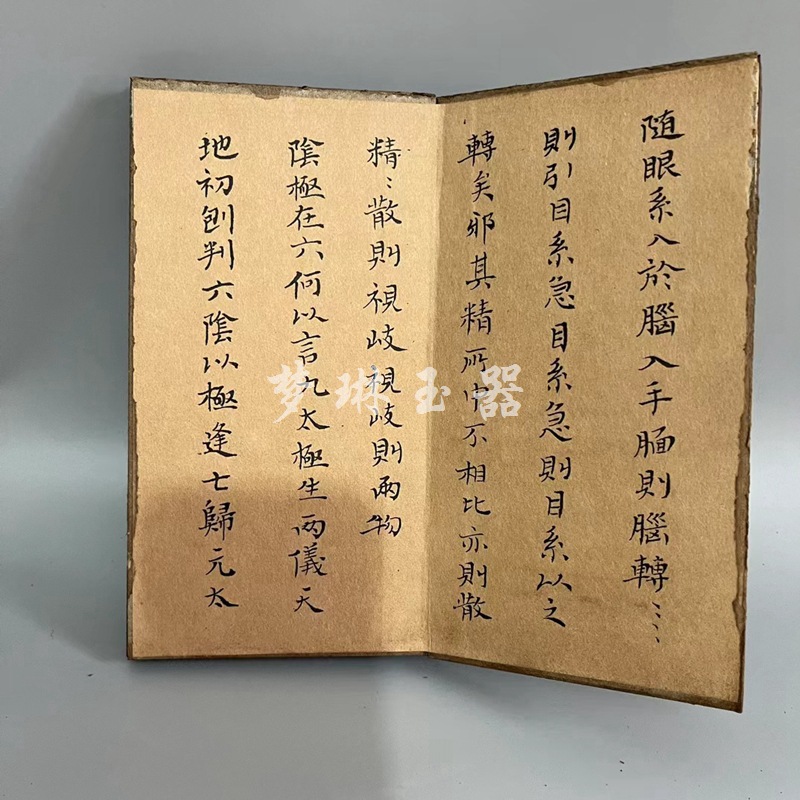 随眼系入於腦入手腼則腦轉、、、
則引目系急目系急則目系以之
轉矣邪其精所中不相比亦則散
精、、散則視歧視歧則兩物
陰極在六何以言九太極生兩儀天
地初刨判六陰以極逢七歸元太
梦琳玉器